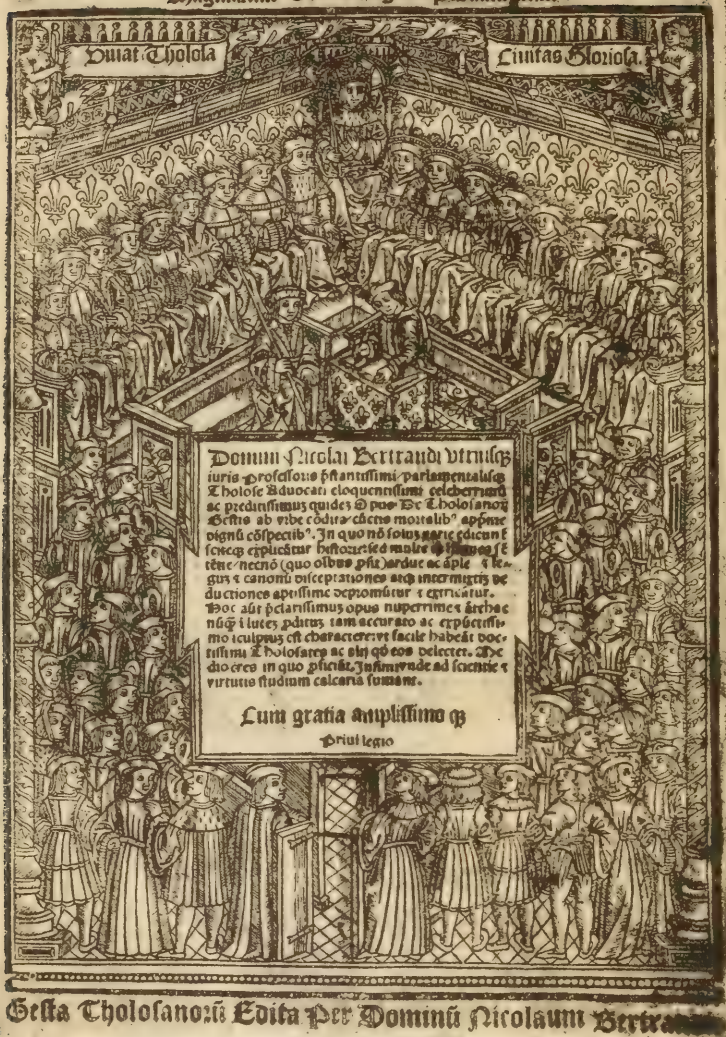 Viuat Tholosa
Ciuitas Gloriosa.
Domini Nicolai Bertrandi vtriusqꝫ
iuris professoris p̄stantissimi parlamentalisqꝫ
Tholose Aduocati eloquentissimi celeberrimū
ac preditissimuꝫ quideꝫ Opus De Tholosanoꝝ
Gestis ab vrbe cōdita cūctis mortalibꝰ apprime
dignū cōspectibꝰ. In quo nō soluꝫ
explicātur historie sed multe
tēne necnō (quo oībus ꝓsit) ardue ac āple ⁊ le-
gum ⁊ canonū disceptationes atqꝫ intermixtis de
ductiones aptissime depromūtur ⁊ extricātur.
Hoc aūt p̄clarissimuꝫ opus nuperrime ⁊ ātehac
nūqꝫ̄ ī luceꝫ ꝓditus tam accurato ac expūctissi-
mo isculptuꝫ est charactere: vt facile habeāt doc-
tissimi Tholosates ac alij qḋ eos delectet. Me
diocres in quo ꝓficiāt. Infimi vnde ad scientie ⁊
virtutis studium calcaria sumant.
Cum gratia amplissimo qꝫ
Priuilegio
Gesta Tholosanoꝝ Edita Per Dominū Nicolaum